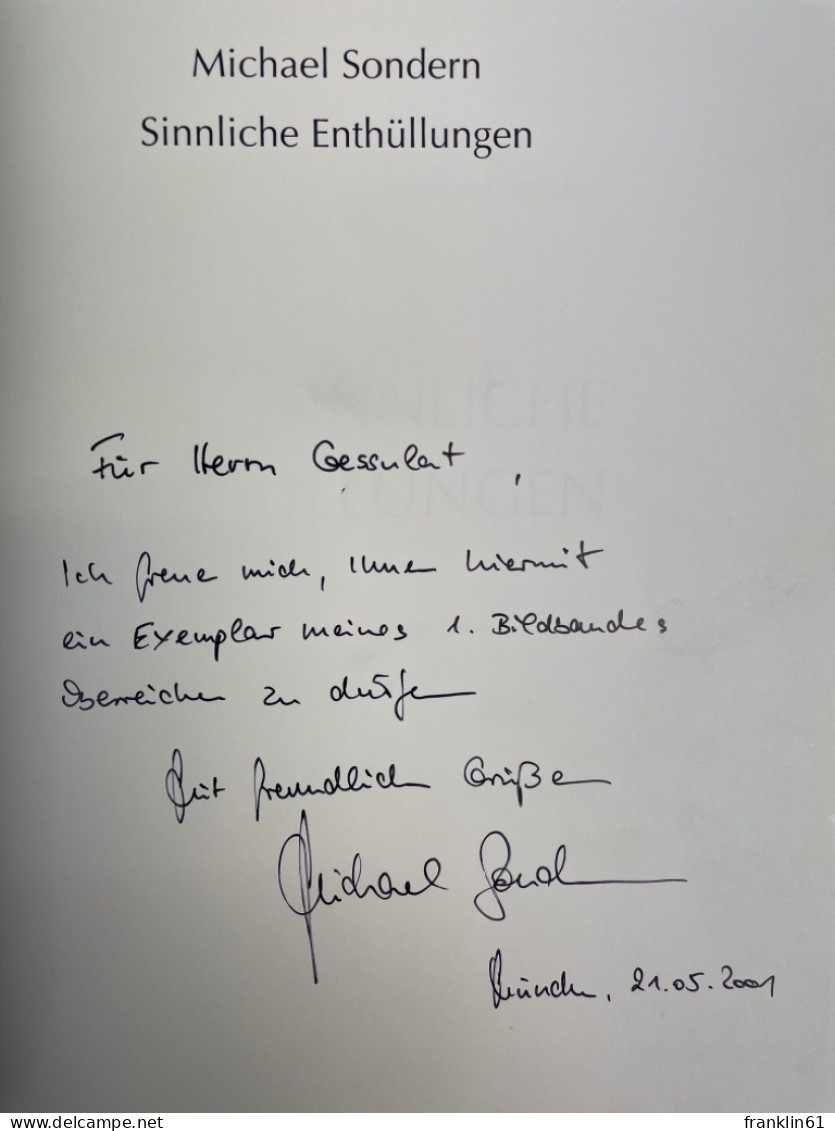 Michael Sondern
Sinnliche Enthüllungen
Für Herrn Gessulat,
Ich freue mich, Ihnen hiermit
ein Exemplar meines 1. Bildbandes
überreichen zu dürfen
Mit freundlichen Grüßen
Michael Sondern
München, 21.05.2001
INLICHE
LUNGEN
delcampe.net
franklin61